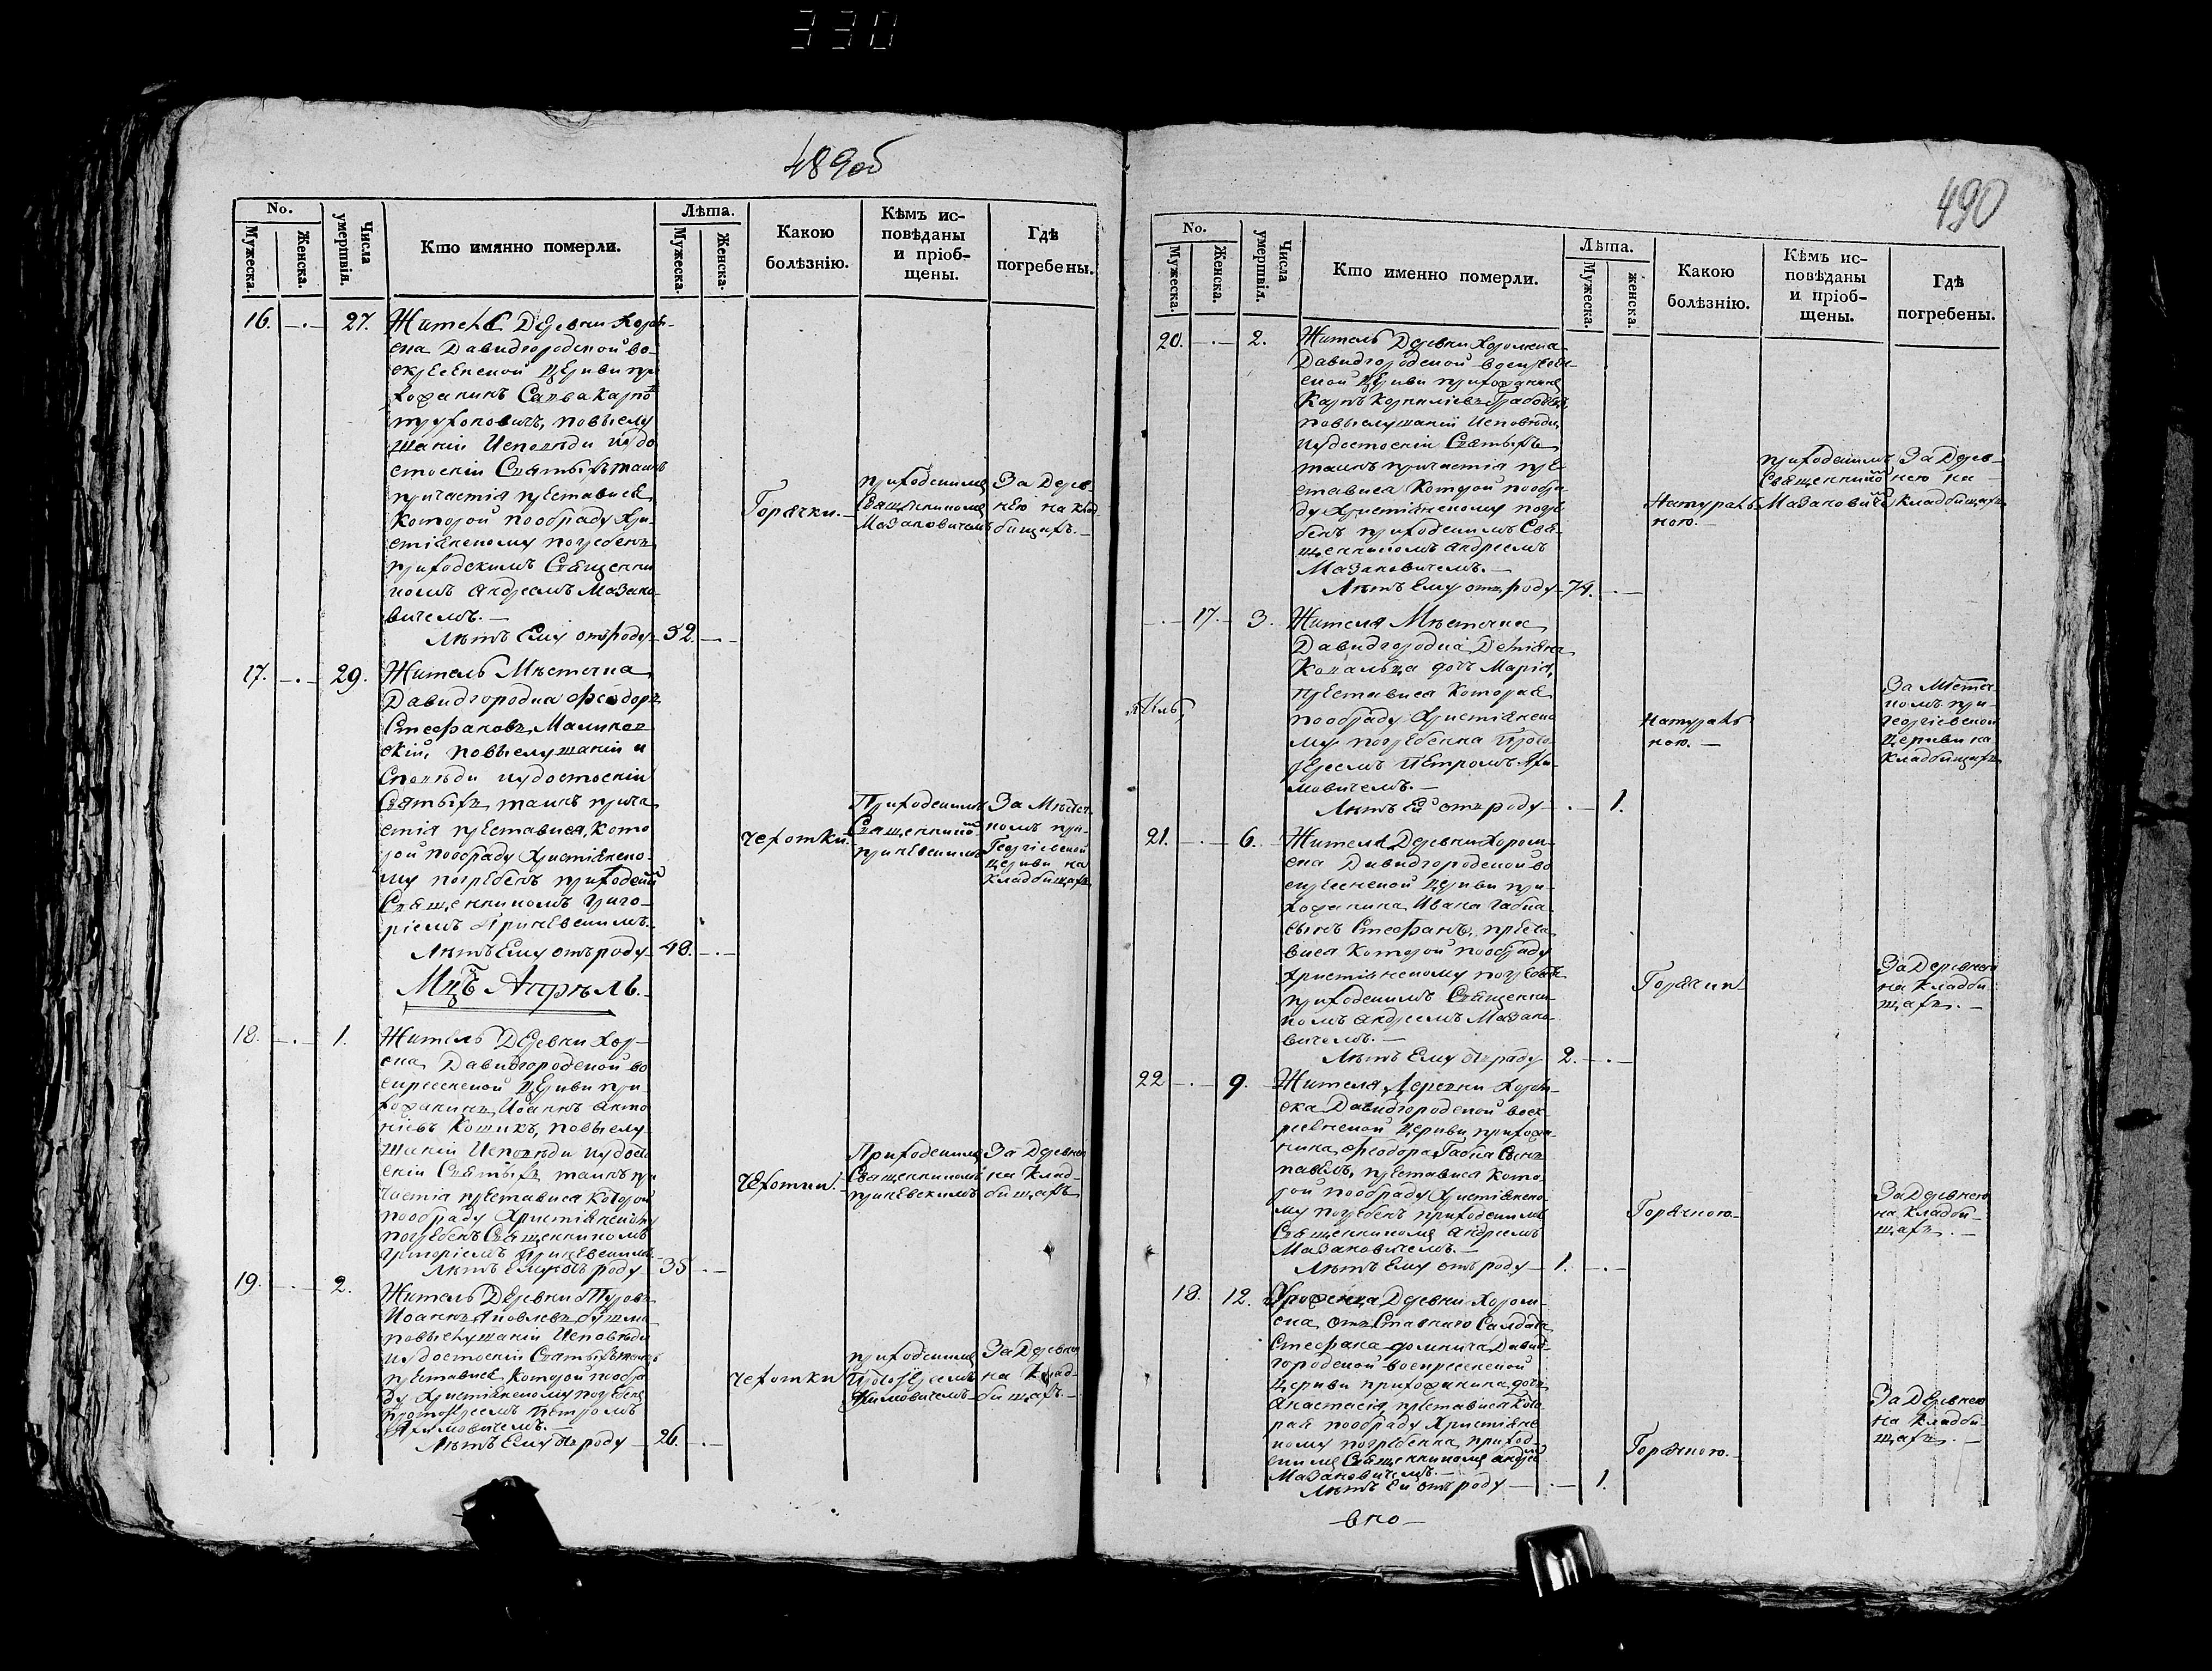 330
489об
No.
Мужеска.
Женска.
Числа умертвія.
Кто имянно померли.
Лѣта.
Мужеска.
Женска.
Какою болѣзнію.
Кѣмъ ис-
повѣданы
и пріоб-
щены.
Гдѣ
погребены.
16. —.— 27.
Жителъ Деревни Хором-
ска Давидгородской во-
скресенской Церкви при
хожанинъ Савва Карпо
Трухоновичъ, повыслу
шаніи Исповѣди иудо
стоеніи Святыхъ таинъ
причастія преставися
которой пообряду Хри-
стіянскому погребенъ
приходскимъ Священни
комъ Андреемъ Мазано-
вичемъ.—
Лѣтъ Ему отъроду 52.—
Горячки.—
приходскимъ
Священникомъ
Мазановичемъ
За Дерев
нею на клад-
бищахъ.—
17. —.— 29.
Житель Мѣстечка
Давидгородка Феодоръ
Стефановъ Малинов
скій, повыслушаніи и
Сповѣди иудостоеніи
Святыхъ таинъ прича
стія преставися, кото
рой пообряду Христіянско-
му погребенъ приходским
Священникомъ Григо-
ріемъ Гриневскимъ.
Лѣтъ Ему отъроду 40.—.—
чехотки.
Приходскимъ
Священнико
Гриневскимъ
За Мѣстеч
комъ при-
Георгіевской
Церкви на
кладбищахъ
Мцъ Апрѣль.
18. —.— 1.
Житель Деревни Хор-
ска Давидгородской во
скресенской Церкви при-
хожанинъ Иоаннъ Анто
ніевъ Кошикъ, повыслу
шаніи Исповѣди иудосто
еніи Святыхъ таинъ при
частія преставися которой
пообряду Христіянскому
погребенъ Священникомъ
Григоріемъ Гриневскимъ.
Лѣтъ Ему отъ роду 35.—
Чехотки.
Приходскимъ
Священникомъ
Гриневскимъ
За Деревнею
на Клад-
бищахъ
19. —.— 2.
Житель Деревни
Иоаннъ Яковлевъ
повыслушаніи Исповѣди
иудостоеніи Святыхъ таинъ
преставися, которой пообря
ду Христіянскому погребенъ
протоіереемъ Петромъ
Лѣтъ Ему отъ роду 26.—.—
Чехотки
приходскимъ
Протоіреемъ
За Деревнею
на Клад-
бищахъ.—
490
No.
Мужеска.
Женска.
Числа умертвія.
Кто именно померли.
Лѣта.
Мужеска.
женска.
Какою болѣзнію.
Кѣмъ ис-
повѣданы
и пріоб-
щены.
Гдѣ
погребены.
20. —.— 2.
Житель Деревни Хоромска
Давидгородской воскресен-
ской Церкви прихожанинъ
Карпъ Корниліевъ
повыслушаніи Исповѣди
иудостоеніи Святыхъ
таинъ причастія пре
ставися Которой пообря
ду Христіянскому погре
бенъ приходскимъ Свя-
щенникомъ Андреемъ
Мазановичемъ.—
Лѣтъ Ему отъ роду 74.—
Натураль
ною.—
приходскимъ
Священнико
Мазановиче
За Дерев-
нею на
кладбищахъ
—.— 17. 3.
Жителя Мѣстечка
Давидгородка
Ковальца дочь Марія,
преставися Которая
пообряду Христіянско
му погребенна Прото
іереемъ Петромъ
Лѣтъ Ей отъ роду —.— 1.
Натураль
ною.—
За Мѣстеч
комъ при-
Георгіевской
Церкви на
Кладбищахъ
21. —.— 6.
Жителя Деревни Хором-
ска Давидгородской во
скресенской Церкви при-
хожанина Ивана Габца
сынъ Стефанъ, преста
вися Которой пообряду
Христіянскому погребенъ
приходскимъ Священни-
комъ Андреемъ Мазано
вичемъ.—
Лѣтъ Ему отъ роду 2.—.—
Горячки
За Деревнею
на Кладби-
щахъ.—
22 —.— 9.
Жителя Деревни Хором-
ска Давидгородской воск-
ресенской Церкви прихожа-
нина Феодора Габца Сынъ
павелъ, преставися Кото-
рой пообряду Христіянско-
му погребенъ приходскимъ
Священникомъ Андреемъ
Мазановичемъ.—
Лѣтъ Ему отъ роду 1.—.—
Горячкою.
За Деревнею
на Кладби-
щахъ.—
18. 12.
Уроженца Деревни Хором-
ска отъставнаго Салдата
Стефана Давид-
городской воскресенской
Церкви прихожанина дочь
Анастасія преставися Кото
рая пообряду Христіянс
кому погребенна приход-
скимъ Священникомъ Андрее
Мазановичемъ.—
Лѣтъ Ей отъ роду —.— 1.
Горячкою.—
За Деревнею
на Кладби-
щахъ.—